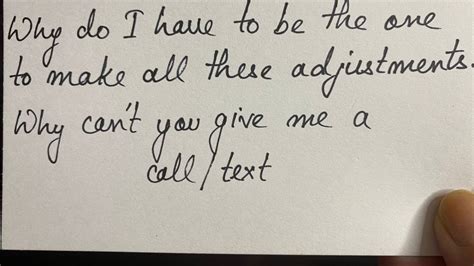 Why do I have to be the one
to make all these adjustments.
Why can't you give me a
call/text